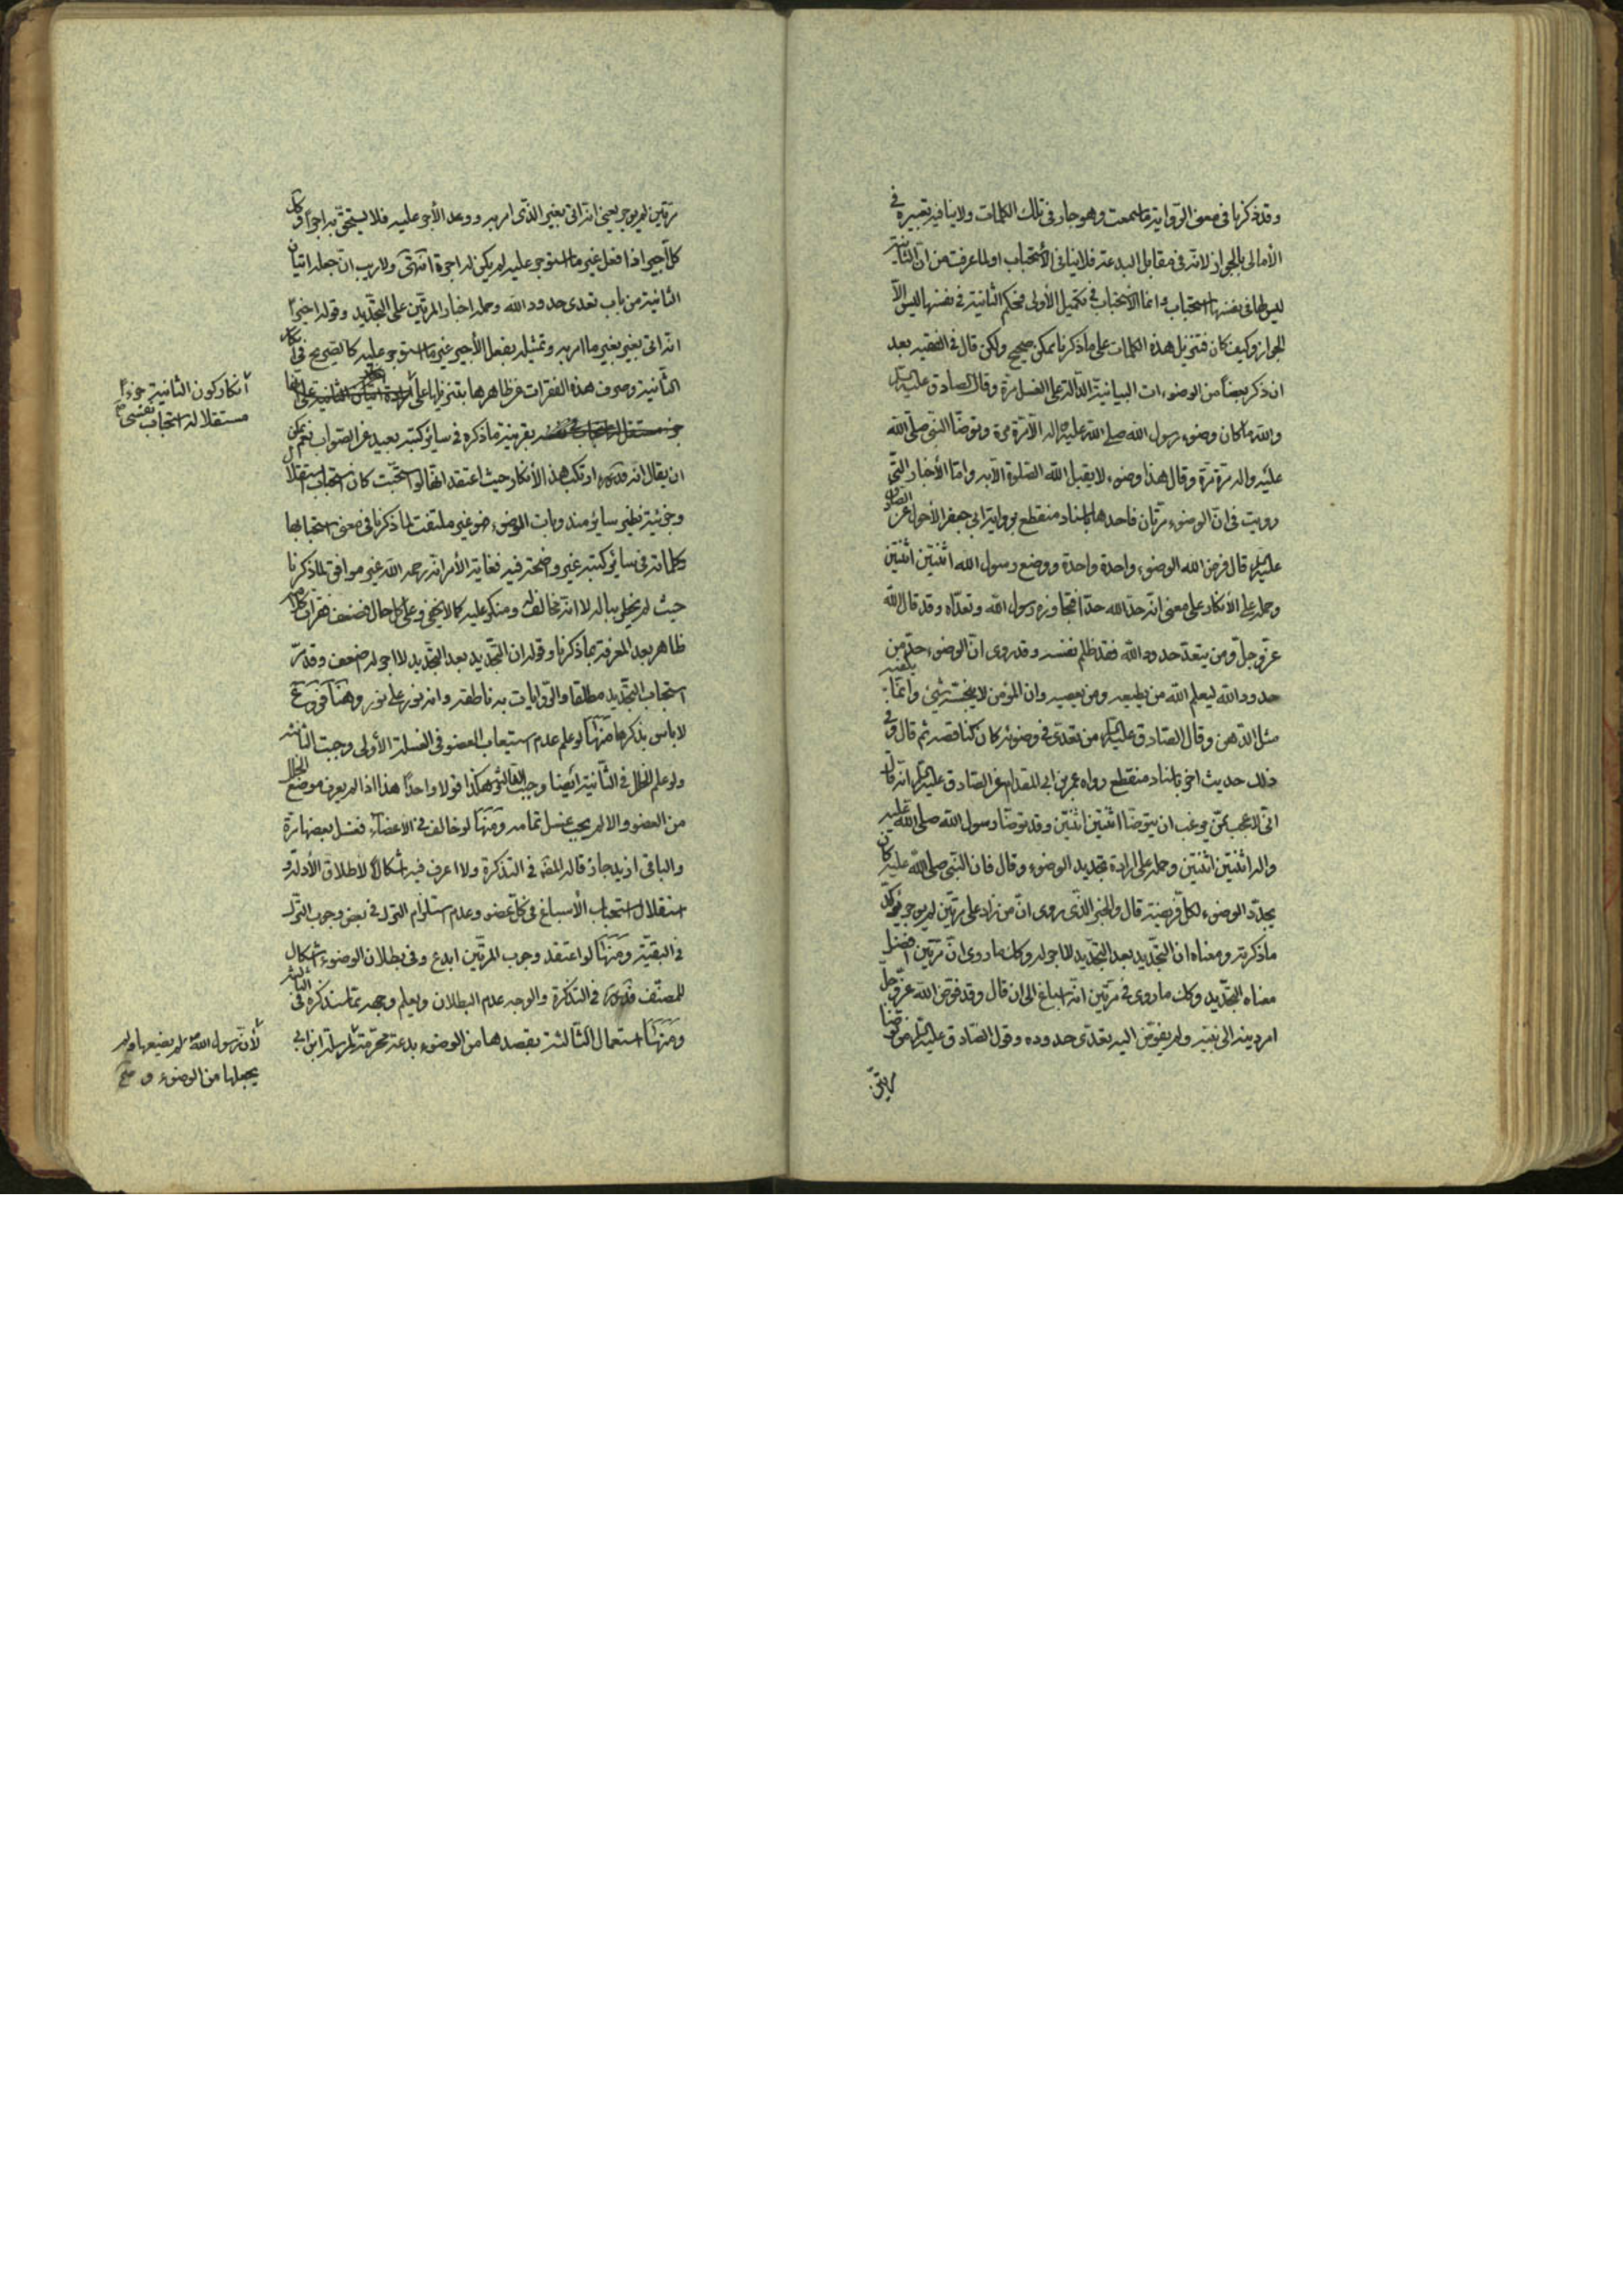 وقد ذكرنا في معنى الرواية ما سمعت وهو جار في تلك الكلمات ولا ينافيه تعبيره في
الأمالي بالجواز لانه في مقابل البدعة فلا ينافي الأستحباب او لما عرفت من ان الثانية
ليس لها في نفسها استحباب وانما الأستحباب في تكميل الأولى فحكم الثانية في نفسها ليس الّا
الجواز وكيف كان فتنزيل هذه الكلمات على ما ذكرنا ممكن صحيح ولكن قال في الفقيه بعد
ان ذكر بعضاً من الوضوءات البيانية الدالة على الغسل مرة وقال الصادق عليه السلم
والله ما كان وضوء رسول الله صلى الله عليه واله الّا مرة مرة وتوضأ النبي صلى الله
عليه واله مرة مرة وقال هذا وضوء لا يقبل الله الصلوة الّا به واما الأخبار التي
رويت في ان الوضوء مرتان فاحدها باسناد منقطع برواية ابي جعفر الأحول عن الصادق
عليه السلم قال فرض الله الوضوء واحدة واحدة ووضع رسول الله اثنتين اثنتين
وحمله على الأنكار على معنى انه حد الله حدا فتجاوزه رسول الله وتعداه وقد قال الله
عز وجل ومن يتعد حدود الله فقد ظلم نفسه وقد روى ان الوضوء حد من
حدود الله ليعلم الله من يطيعه ومن يعصيه وان المؤمن لا ينجسه شيئ وانما يكفيه
مثل الدهن وقال الصادق عليه السلم من تعدى في وضوئه كان كناقصه ثم قال وفي
ذلك حديث اخر باسناد منقطع رواه عمرو بن ابي المقدام عن الصادق عليه السلم انه قال
اني لاعجب ممن يرغب ان يتوضأ اثنتين اثنتين وقد توضأ رسول الله صلى الله عليه
واله اثنتين اثنتين وحمله على ارادة تجديد الوضوء وقال فان النبي صلى الله عليه كان
يجدد الوضوء لكل فريضة قال والخبر الذي روى ان من زاد على مرتين لم يوجر يؤكد
ما ذكرته ومعناه ان التجديد بعد التجديد لا اجر له وكذلك ما روى ان مرتين افضل
معناه التجديد وكذلك ما روى في مرتين انه اسباغ الى ان قال وقد فوض الله عز وجل
امر دينه الى نبيه ولم يفوض اليه تعدى حدوده وقول الصادق عليه السلم من توضأ
مرتين
مرتين لم يوجر يعني انه اتى بغير الذي امر به ووعد الأجر عليه فلا يستحق به اجرا وكذلك
كل اجير اذا فعل غير ما استوجر عليه لم يكن له اجرة انتهى ولا ريب ان جعله اتيان
الثانية من باب تعدى حدود الله وحمله اخبار المرتين على التجديد وقوله اخيراً
انه اتى بغير ما امر به وتمثيله بفعل الأجير غير ما استوجر عليه كالصريح في انكار
الثانية وصرف هذه الفقرات عن ظاهرها بتنزيلها على
بقرينة ما ذكره في سائر كتبه بعيد عن الصواب نعم يمكن
ان يقال انه قدس سره ارتكب هذا الأنكار حيث اعتقد انها لو استحبت كان استحباب استقلال
وجزئية نظير سائر مندوبات الوضوء فهو غير ملتفت لما ذكرنا في معنى استحبابها
وكلماته في سائر كتبه غير واضحة فيه فغاية الأمر انه رحمه الله غير موافق لما ذكرنا
حيث لم يخطر بباله لا انه مخالف ومنكر عليه كما لا يخفى وعلى كل حال فضعف فقرات كلامه
ظاهر بعد المعرفة بما ذكرنا وقوله ان التجديد بعد التجديد لا اجر له ضعف وقد مر
استحباب التجديد مطلقا والروايات به ناطقة وانه نور على نور وهنا فروع
لا باس بذكرها منها لو علم عدم استيعاب العضو في الغسلة الأولى وجبت الثانية
ولو علم الخلل في الثانية ايضا وجبت الثالثة وهكذا قولا واحدا هذا اذا لم يعرف موضع الخلل
من العضو والا لم يجب غسل تمامه ومنها لو خالف في الأعضاء فغسل بعضها مرة
والباقي ازيد جاز قاله المصنف في التذكرة ولا اعرف فيه اشكالاً لأطلاق الأدلة و
استقلال استحباب الأسباغ في كل عضو وعدم استلزام الترك في بعض وجوب الترك
في البقية ومنها لو اعتقد وجوب المرتين ابدع وفي بطلان الوضوء اشكال
للمصنف قدس سره في التذكرة والوجه عدم البطلان ويعلم وجهه مما سنذكره في الثالثة
ومنها استعمال الثالثة بقصدها من الوضوء بدعة محرمة لمرسلة ابن ابي
انكار كون الثانية جزءاً
مستقلا له استحباب نفسي صح
لأن رسول الله لم يضعها ولم
يجعلها من الوضوء و صح